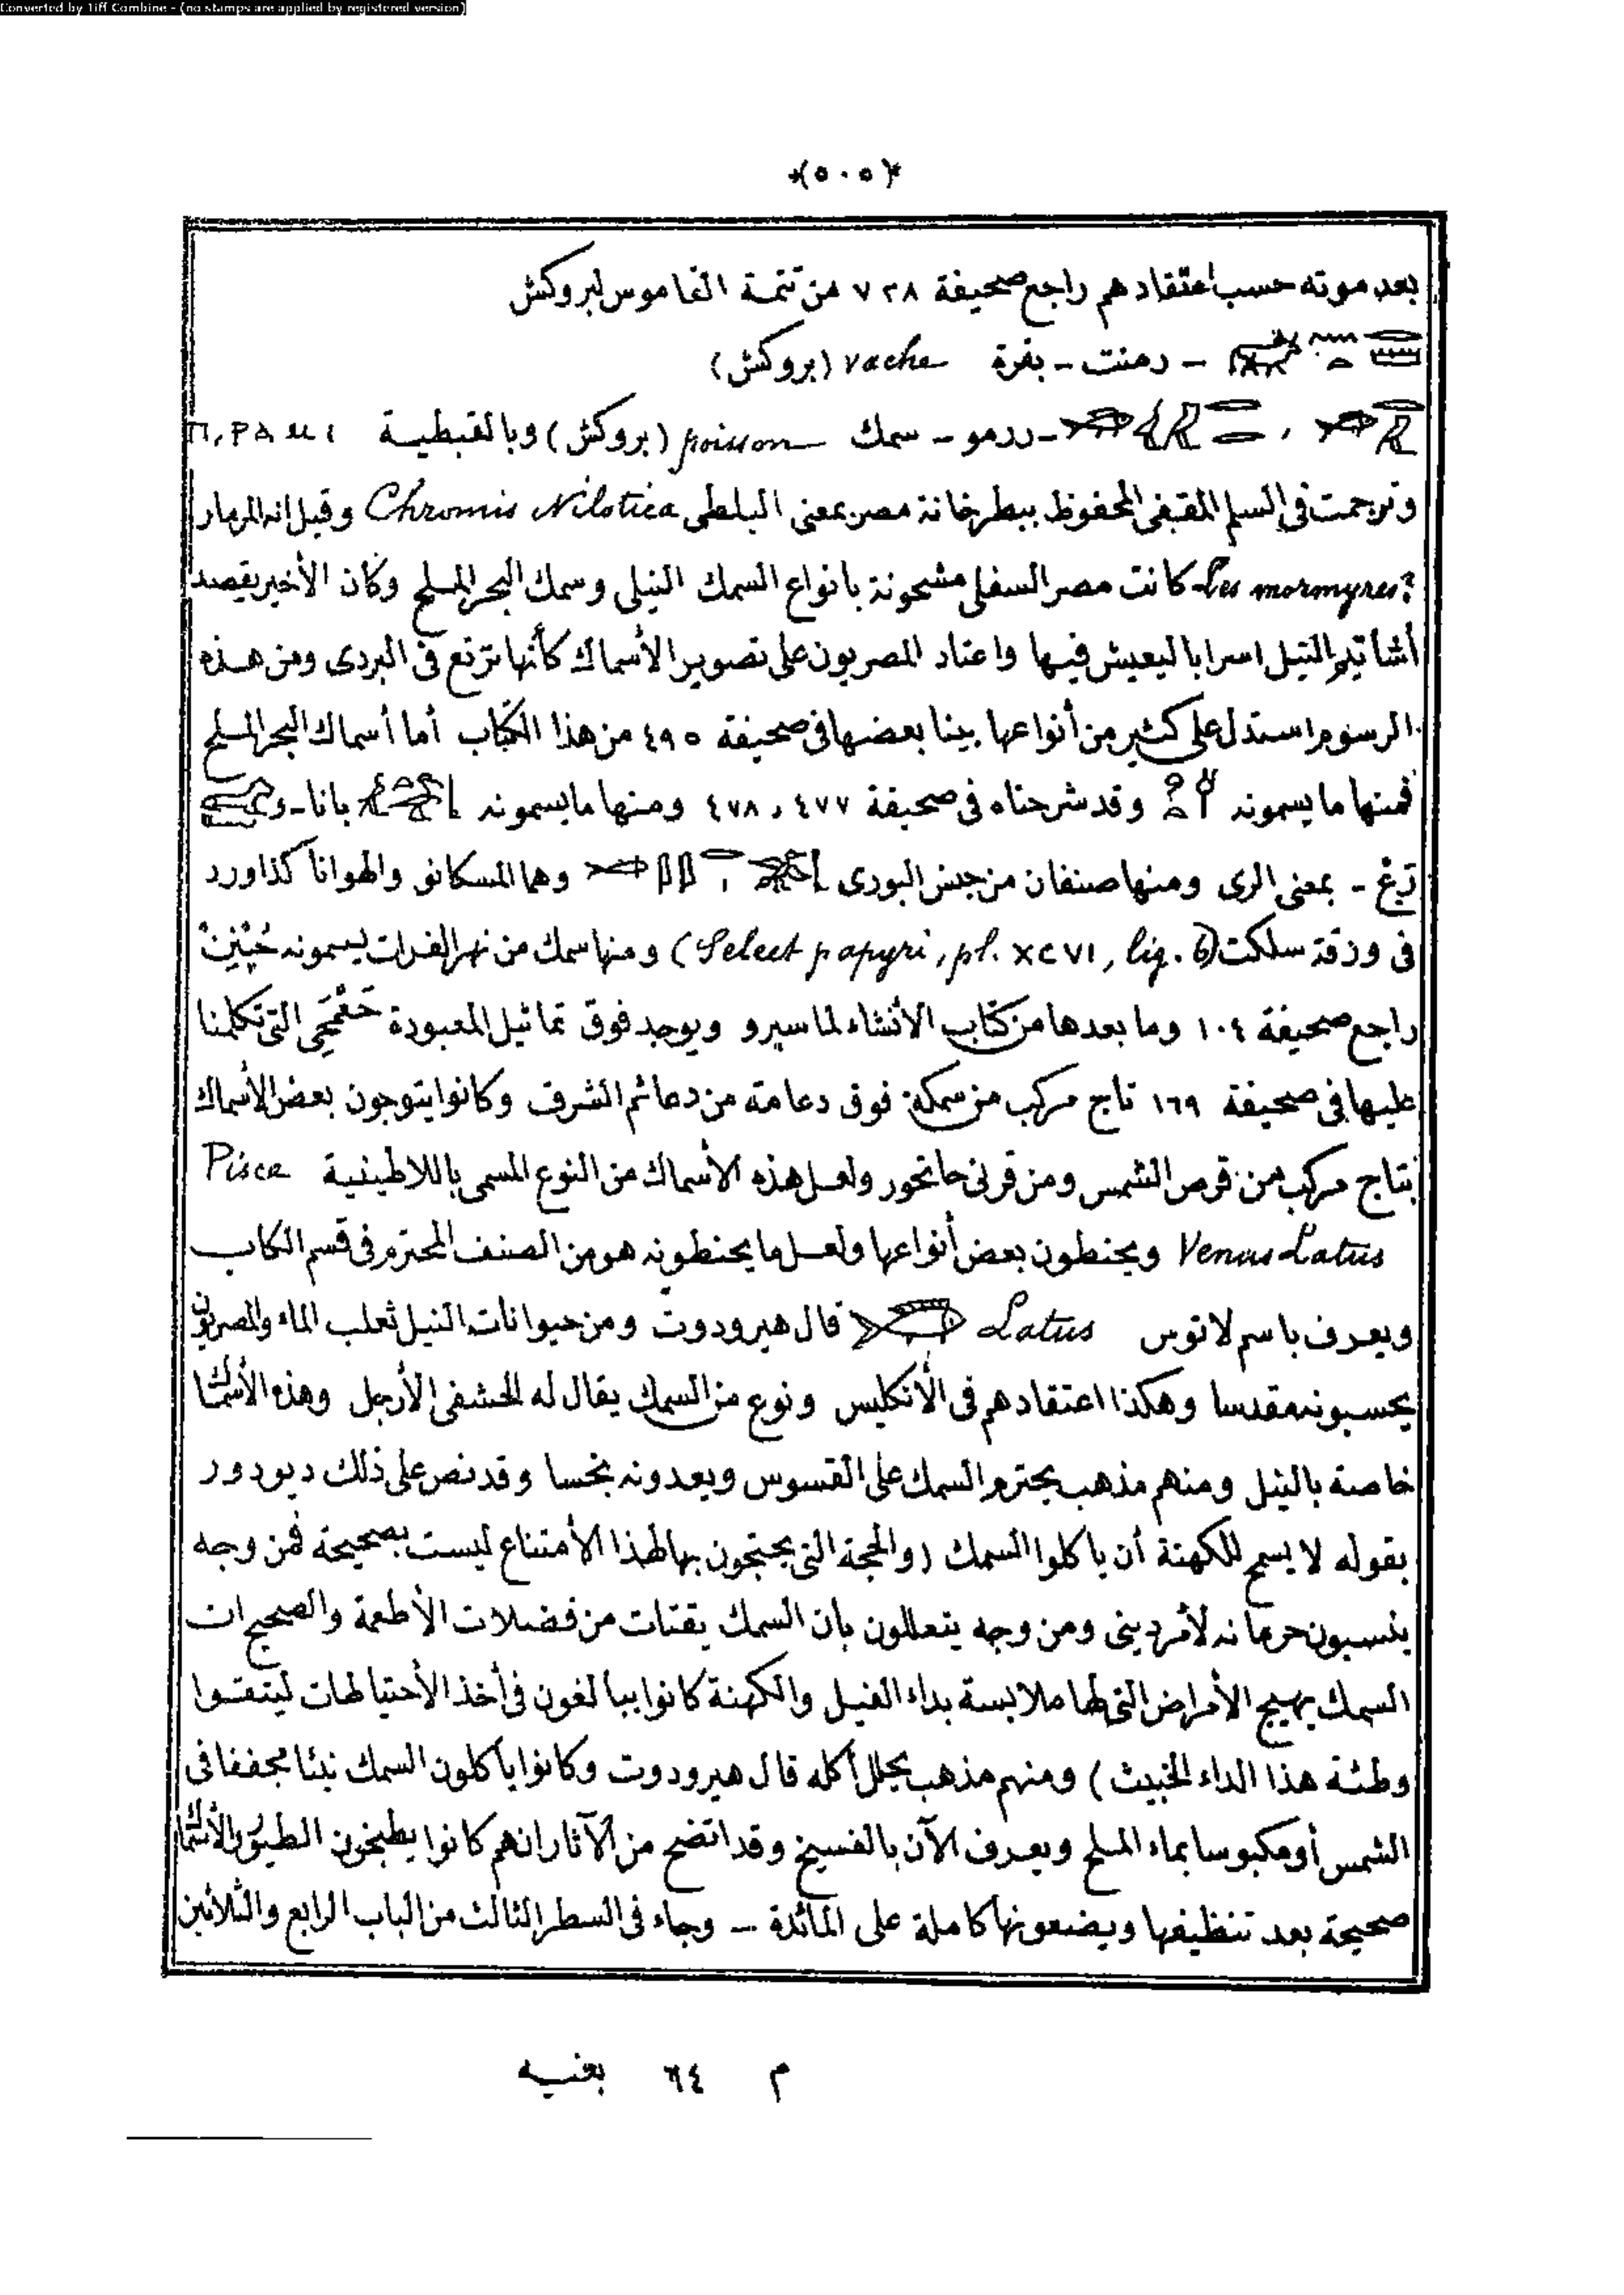 Converted by Tiff Combine - (no stamps are applied by registered version)
*(٥٠٥)*
بعد موته حسب اعتقادهم راجع صحيفة ٧٢٨ من تتمة القاموس لبروكش
- رمنت - بقرة vache (بروكش)
، - ررمو - سمك poisson (بروكش) وبالقبطية
وترجمت فى السلم المقفى المحفوظ ببطرخانة مصر بمعنى البلطى Chromis Nilotica وقيل انه المرمار
Les mormyres? كانت مصر السفلى مشحونة بانواع السمك النيلى وسمك البحر الملح وكان الأخير يقصد
أشاتيم النيل اسرابا ليعيش فيها واعتاد المصريون على تصوير الأسماك كأنها ترتع فى البردى ومن هذه
الرسوم استدل على كثير من أنواعها بينا بعضها فى صحيفة ٤٩٥ من هذا الكتاب أما أسماك البحر الملح
فمنها ما يسمونه وقد شرحناه فى صحيفة ٤٧٧ ، ٤٧٨ ومنها ما يسمونه بانا - و
- بمعنى الرى ومنها صنفان من جنس البورى وهما المسكانو والهوانا كذا ورد
فى ورقة سلكت (Select papyri, pl. XCVI, lig. 6) ومنها سمك من نهر الفرات يسمونه
راجع صحيفة ١٠٤ وما بعدها من كتاب الأنشاء لماسپرو ويوجد فوق تماثيل المعبودة حَعْمْحِى التى تكلمنا
عليها فى صحيفة ١٦٩ تاج مركب من سمكة فوق دعامة من دعائم الشرف وكانوا يتوجون بعض الأسماك
بتاج مركب من قرص الشمس ومن قرنى حاتحور ولعل هذه الأسماك من النوع المسمى باللاطينية Pisce
Venus Latus ويحنطون بعض أنواعها ولعل ما يحنطونه هو من الصنف المحترم فى قسم الكاب
ويعرف باسم لاتوس Latus قال هيرودوت ومن حيوانات النيل ثعلب الماء والمصريون
يحسبونه مقدسا وهكذا اعتقادهم فى الأنكليس ونوع من السمك يقال له الحشفى الأرجل وهذه الأسماك
خاصة بالنيل ومنهم مذهب يحترم السمك على القسوس ويعدونه نجسا وقد نص على ذلك ديودور
بقوله لا يسمح للكهنة أن ياكلوا السمك (والحجة التى يحتجون بها لهذا الأمتناع ليست بصحيحة فمن وجه
ينسبون حرمانه لأمر دينى ومن وجه يتعللون بأن السمك يقتات من فضلات الأطعمة والصحيح ان
السمك يهيج الأمراض التى لها ملابسة بداء الفيل والكهنة كانوا يبالغون فى أخذ الأحتياطات ليتقوا
وطئة هذا الداء الخبيث) ومنهم مذهب يحلل أكله قال هيرودوت وكانوا يأكلون السمك نيئا مجففا فى
الشمس أو مكبوسا بماء الملح ويعرف الآن بالفسيخ وقد اتضح من الآثار انهم كانوا يطبخون الطيور والأسماك
صحيحة بعد تنظيفها ويضعونها كاملة على المائدة - وجاء فى السطر الثالث من الباب الرابع والثلاثين
م ٦٤ بغيه